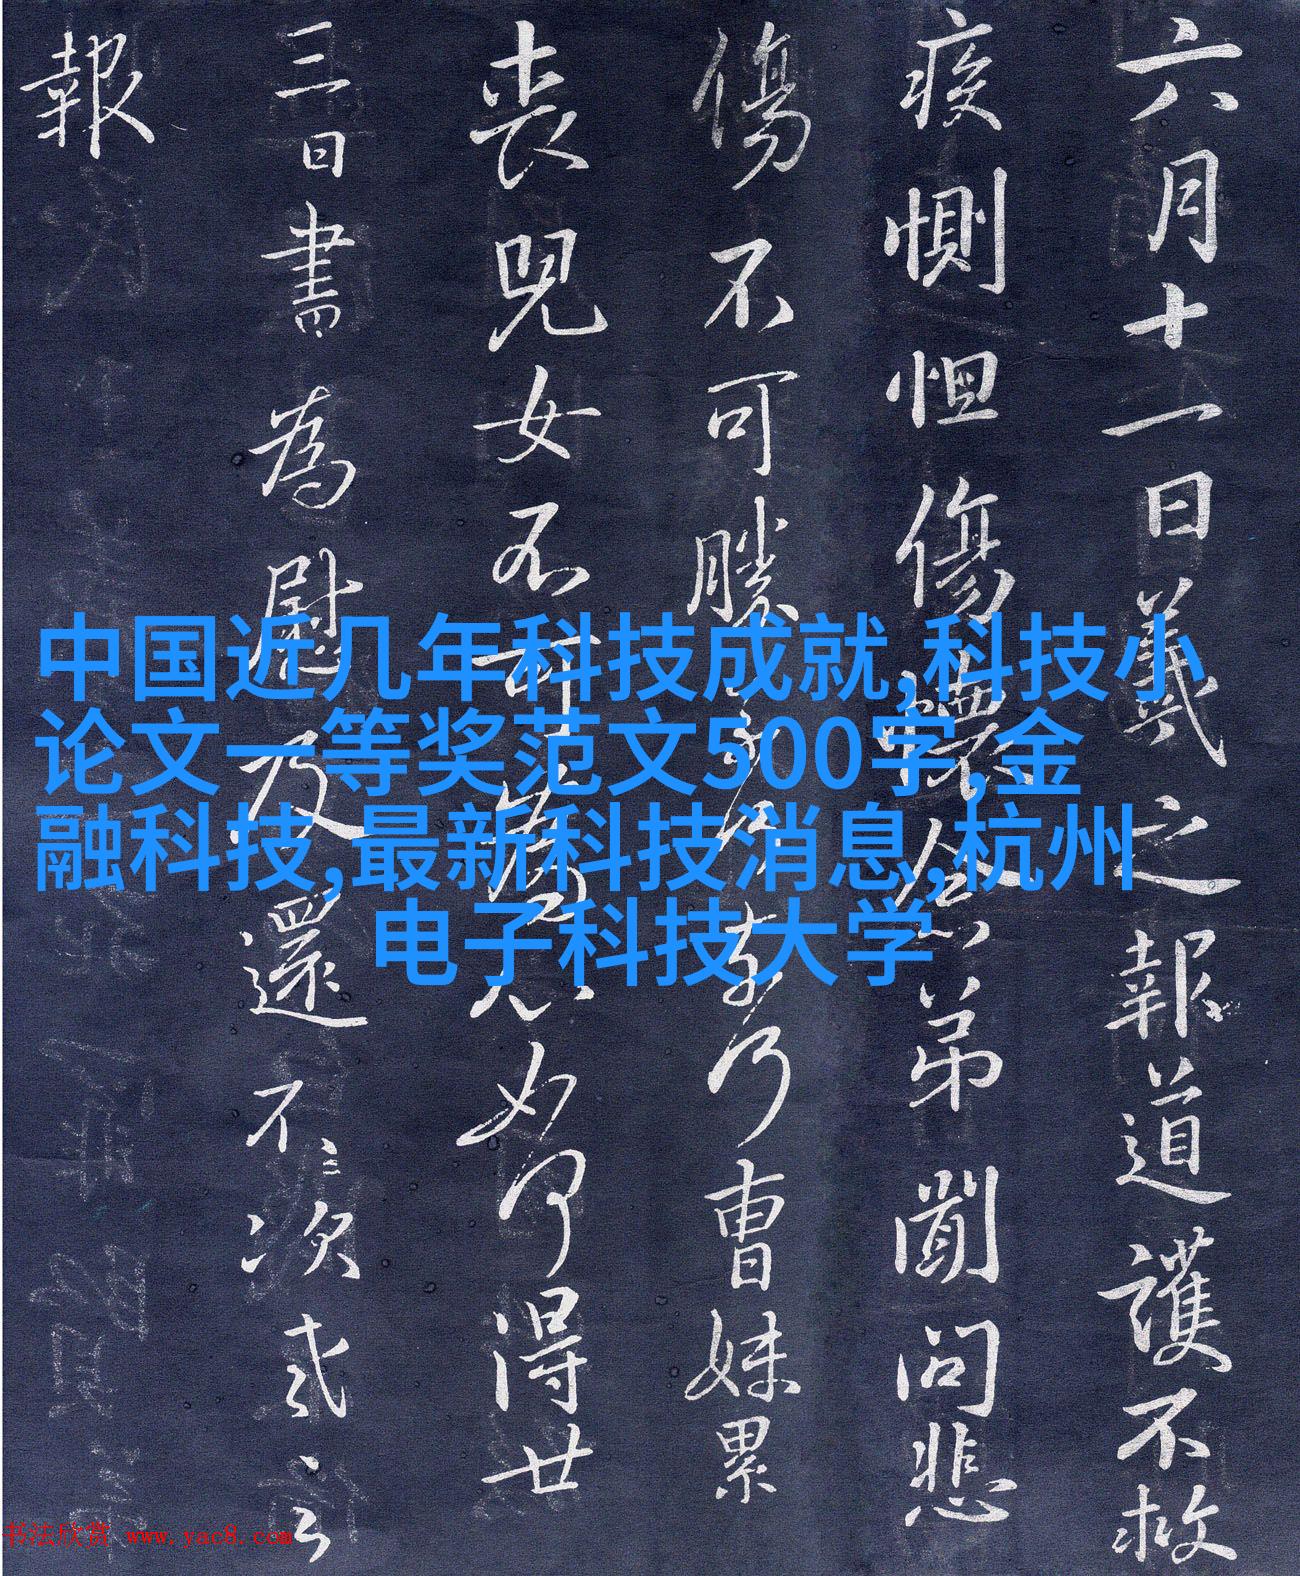 六月十一日羲之報道護不救
疾惻怛傷懷念弟聞問悲
傷不可勝奈何曹妹累
喪兒女不可為心如何得廿
三日書為慰及還不次
報
中国近几年科技成就,科技小
论文一等奖范文500字,金
融科技,最新科技消息,杭州
电子科技大学
书法欣赏 www.yac8.com